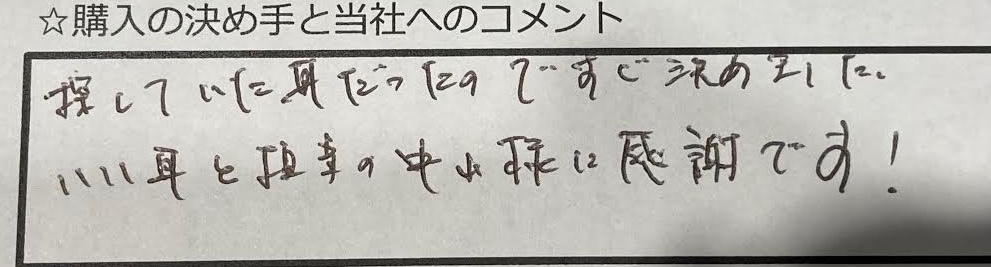 ☆購入の決め手と当社へのコメント
探していた車だったのですぐ決めました。
いい車と担当の中山様に感謝です!